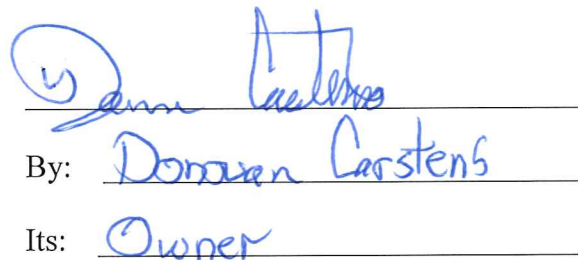 By: Donovan Carstens
Its: Owner